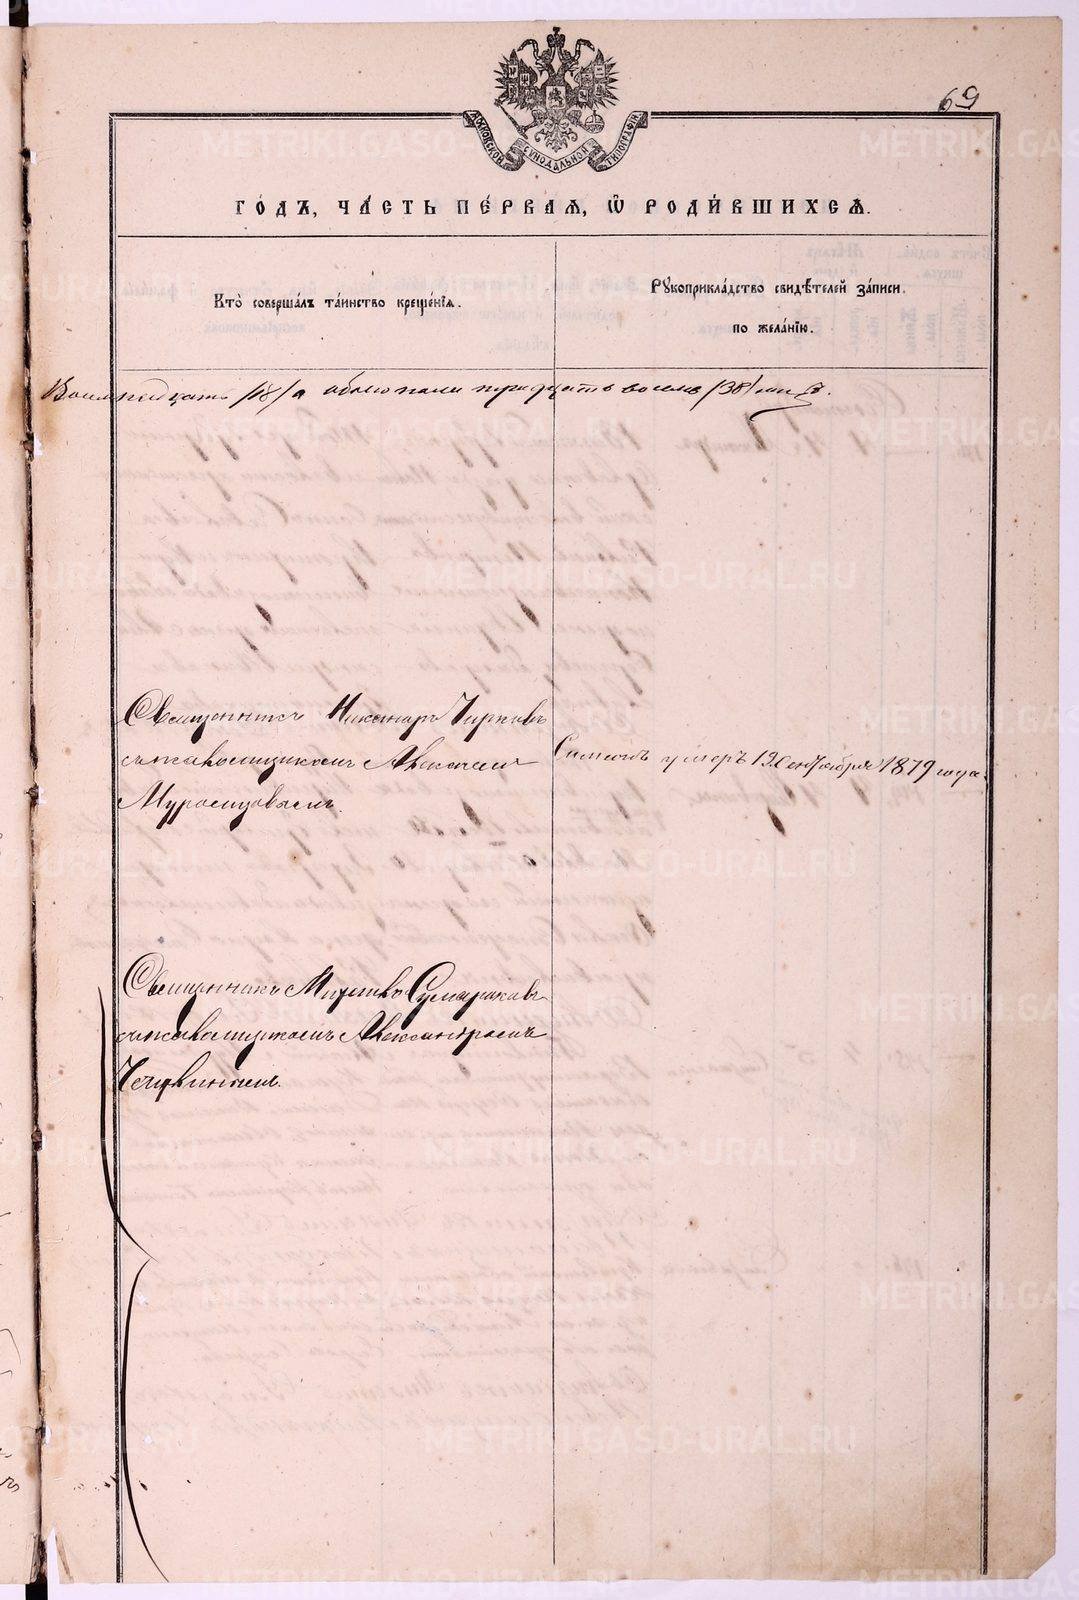 69
МОСКОВСКОЙ СѴНОДАЛЬНОЙ ТИПОГРАФІИ
ГО́ДЪ, ЧА́СТЬ ПЕ́РВАЯ, Ѽ РОДИ́ВШИХСЯ.
Кто̀ соверша́лъ та́инство креще́нїѧ.
Рꙋкоприкла́дство свидѣ́телей за́писи.
по жела́нїю.
Восемнадцать /18/ а обоего пола тридцать восемь /38/
Священникъ Никонаръ Чирковъ
съ псаломщикомъ Алексеемъ
Мурзинцовымъ.
Симеонъ умеръ 13 Сентября 1879 года.
Священникъ Сумароковъ
съ псаломщикомъ Александромъ
METRIKI.GASO-URAL.RU